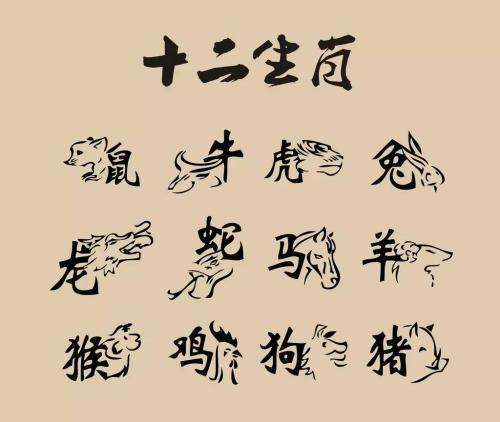 十二生肖
鼠 牛 虎 兔
龙 蛇 马 羊
猴 鸡 狗 猪